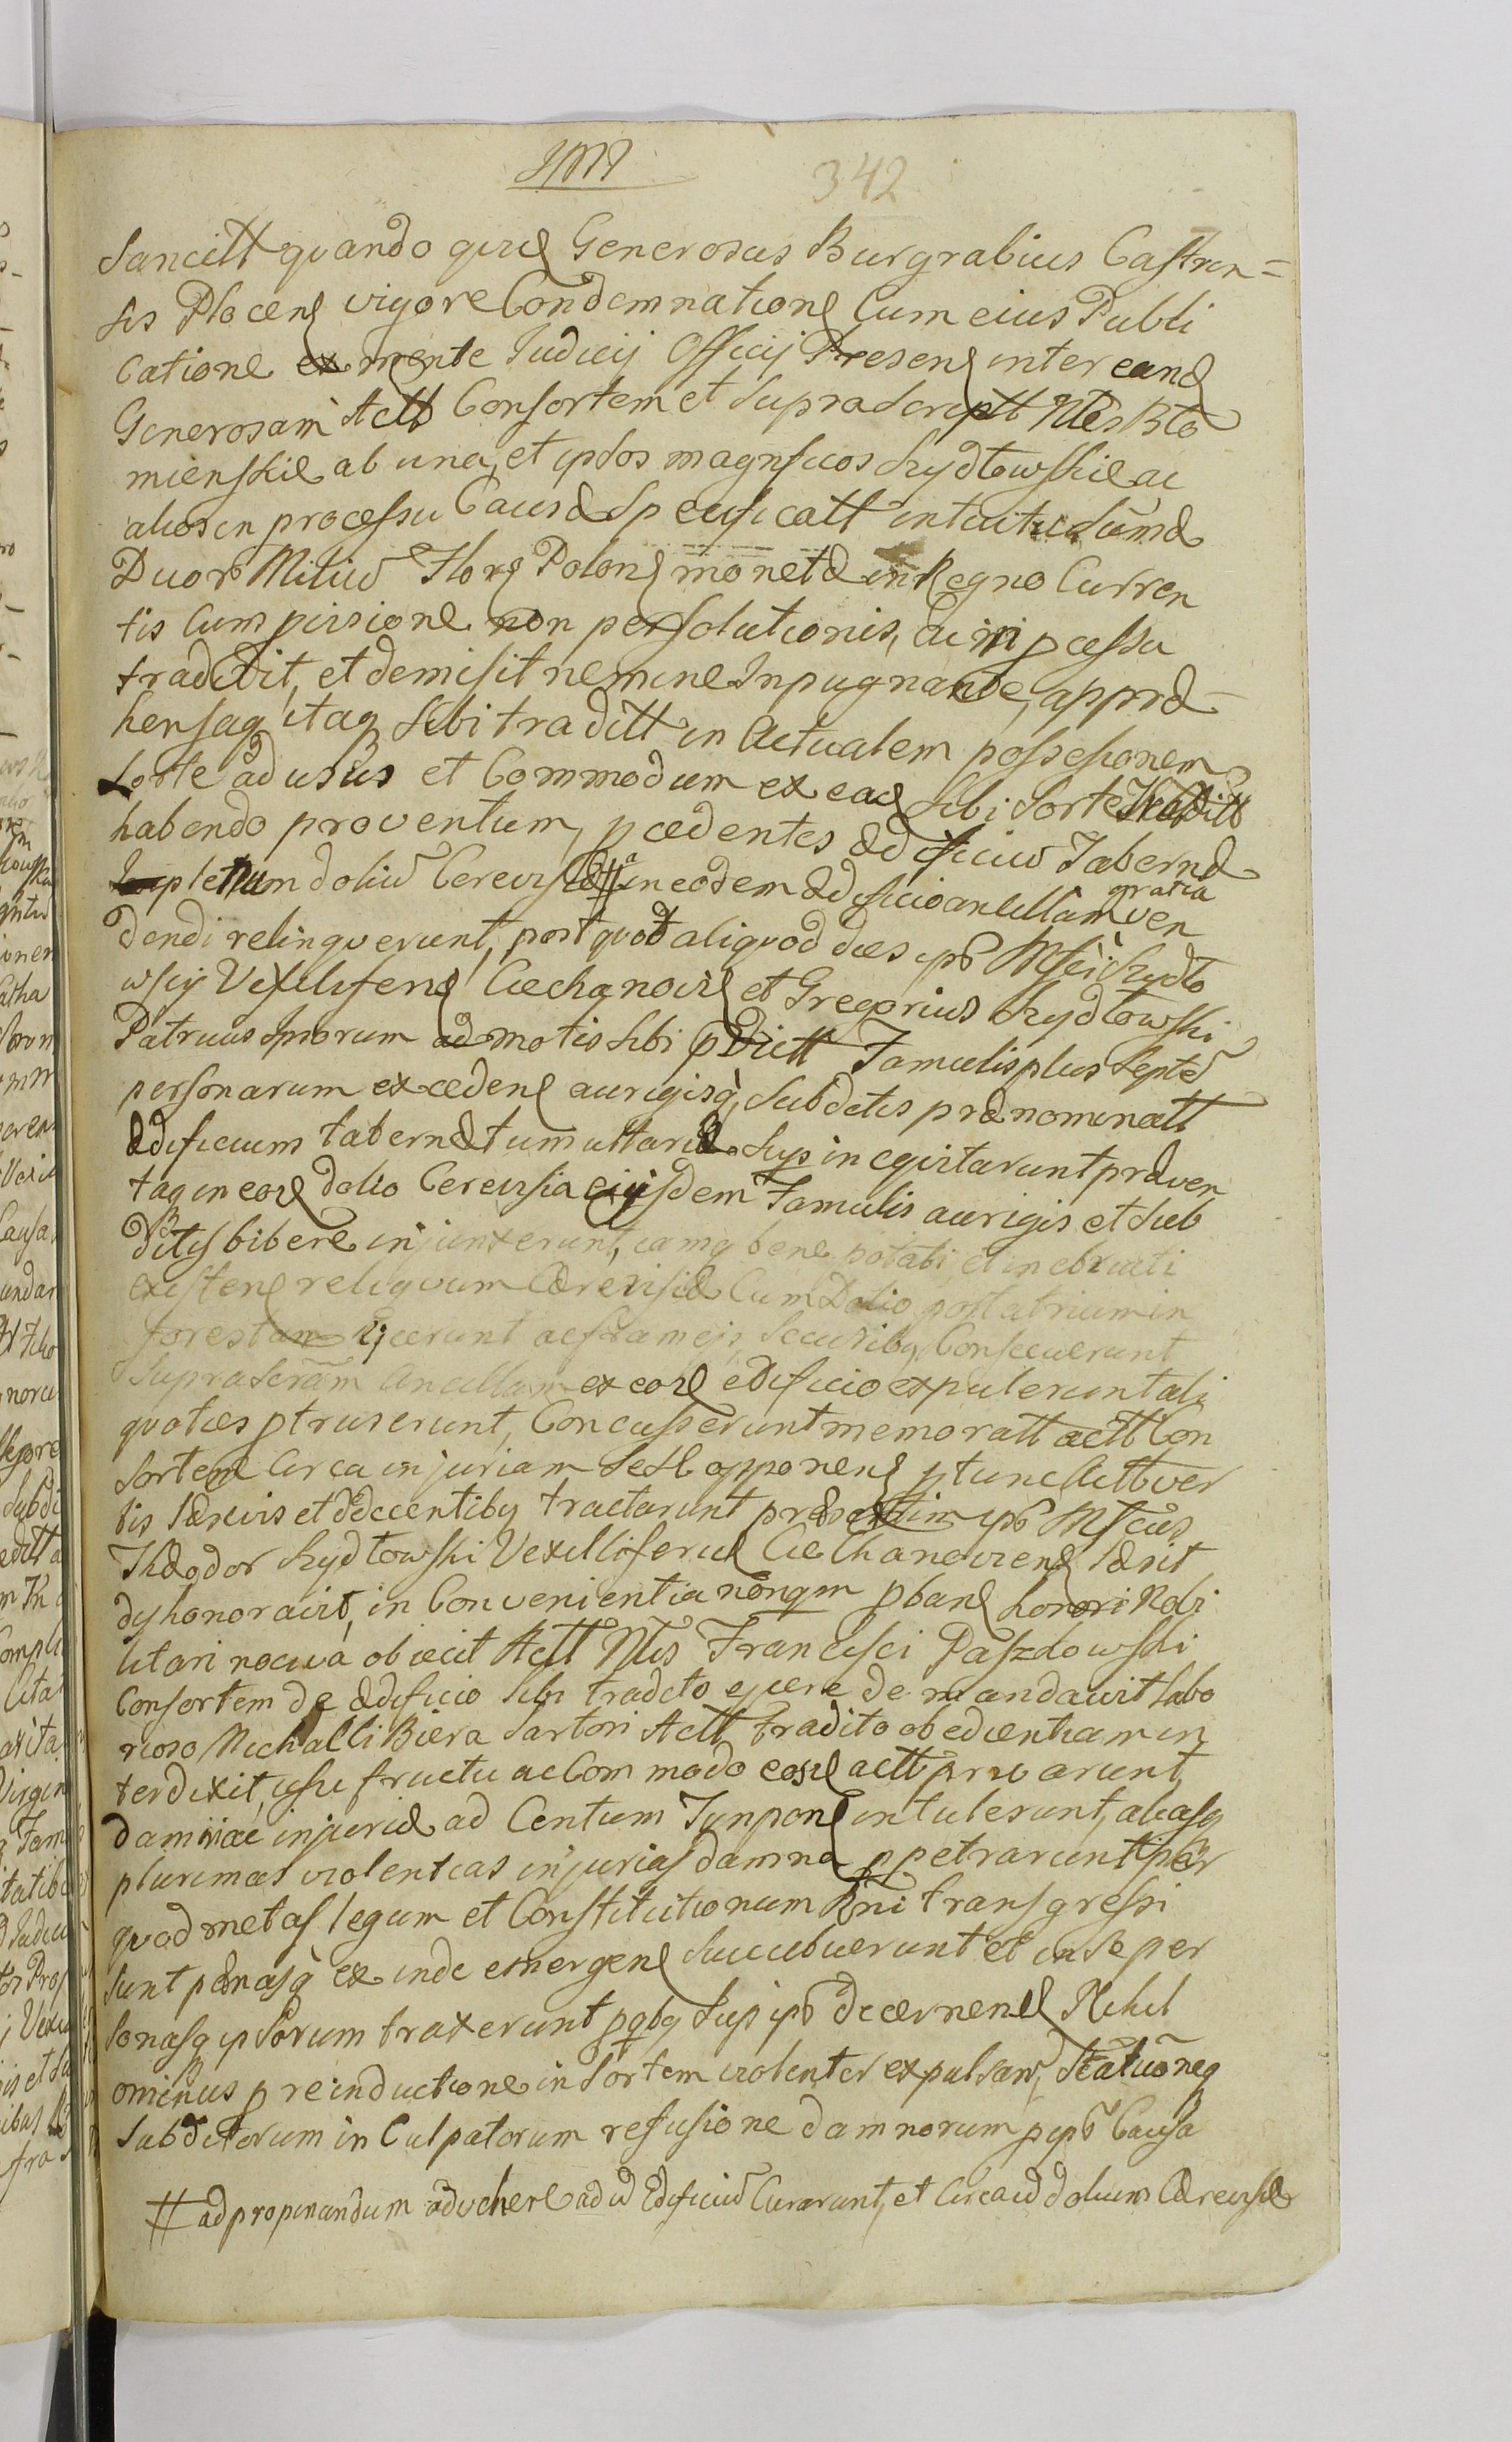 342
Sancitt quando quid Generosus Burgrabius Castren=
sis Plocens vigore Condemnatione Cum eius Publi
catione ex mente Judicij Officij Presens inter eand
Generosam Actt Consortem et Suprascriptt Nles Bło
mienskie ab una, et ipsos magnificos Szydłowskie ac
alios in processu Causæ Specificatt intuitu Summæ
Duor Miliu Flor Polon monetæ in Regno Curren
tis Cum pivsione non persolutionis, ei in pcessu
tradidit, et demisit nemine Inpugnante, appræ
hensaq itaq sibi traditt in Actualem possesionem
Sorte ad usus et Commodum ex ead sibi Sorte Traditt
habendo proventum, pcedentes ædificiu Tabernæ
pletum doliu Cerevisiæ # in eodem ædificio ancillam gratia ven
dendi relinqverunt, post quod aliquod dies ips Mfci Szydło
wscij Vexilifer Ciechanovs et Gregorius Szydłowski
Patruus ipsorum admotis sibi pdictt Famulis plus Septe
personarum excedens aurigisq, Subditis prænominatt
ædificium tabernæ tumultarie Sup ineqvitarunt præven
taq in eod dolio Cerevisia eijsdem Famulis aurigis et Sub
ditis bibere injunxerunt, iamq bene potati et inebriati
existens reliqvum Cerevisiæ Cum Dolio post atrium in
fores ejecerunt ac frameis, Securibq Consecuerunt
Suprascram Ancillam ex eod edificio expulerunt ali
quoties ptruserunt, Concusserunt memoratt actt Con
sortem Circa injuriam Sese opponens ptunc Actt ver
bis Læsivis et ddecentibq tractarunt præsertim ips Mfcus
Theodor Szydłowski Vexillifer Ciechanoviens Læsit
dyhonoravit, in Convenientia nonqm pbans honori Nobi
litari nociva obiecit Actt Nlis Francisci Paszkowski
Consortem de ædificio sibi tradito ejicere demandavit Labo
rioso Michalli Biera Sartori Actt tradito obedientiam in
terdixit, usu fructu ac Commodo eosd actt privarunt,
damna ac injurias ad Centum intulerunt, aliasq
plurimas violentias injurias damna ppetrarunt per
quod metas legum et Constitutionum Rni transgressi
sunt pænasq ex inde emergens Succubuerunt et in se per
sonasq ipsorum traxerunt pqbq Sup ips decernens Nihil
ominus p reinductione in Sortem violenter expulsaru,
Subditorum in Culpatorum refusione damnorum p ips Causa
# ad propinandum advehere ad id Edificiu Curarunt, et Circa id dolium Cerevisiæ